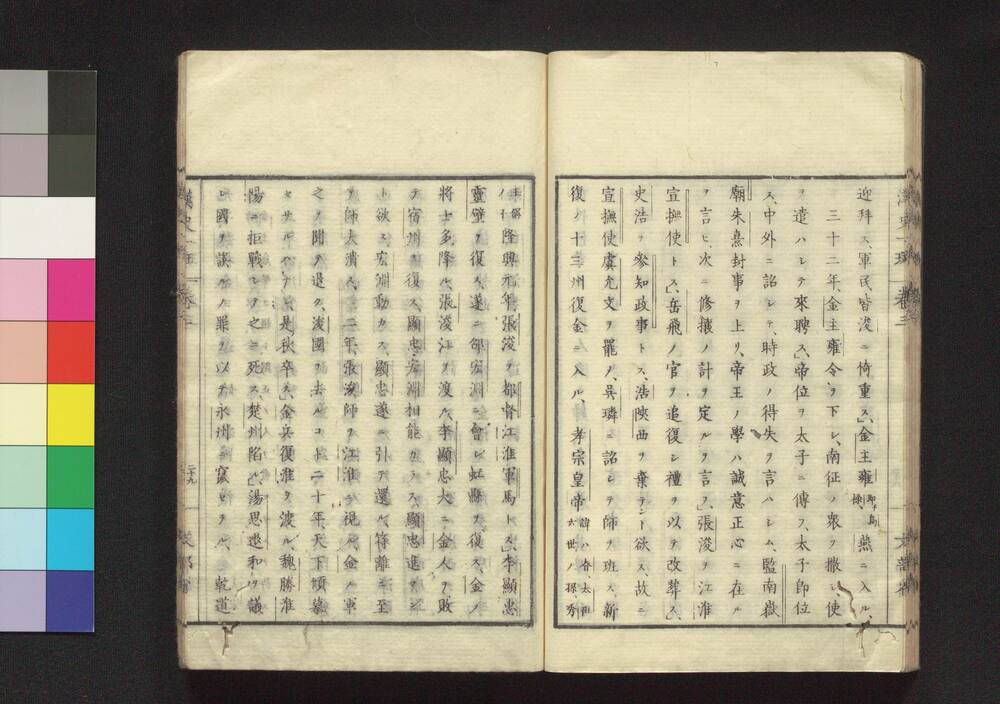 迎拜ス、軍民皆浚ニ倚重ス」金主雍、燕ニ入ル、
三十二年、金主雍令ヲ下シ、南征ノ衆ヲ撒シ、使
ヲ遣ハシテ來聘ス」帝位ヲ太子ニ傳フ、太子卽位
ス、中外ニ詔シテ、時政ノ得失ヲ言ハシム、監南嶽
廟朱熹封事ヲ上リ、帝王ノ學ハ誠意正心ニ在ル
ヲ言ヒ、次ニ修攘ノ計ヲ定ルヲ言フ」張浚ヲ江淮
宣撫使トス」岳飛ノ官ヲ追復シ禮ヲ以テ改葬ス」
史浩ヲ參知政事トス、浩陝西ヲ棄テント欲ス、故ニ
宣撫使虞允文ヲ罷メ、吳璘ニ詔シテ師ヲ班ス、新
復ノ十三州復金ニ入ル、孝宗皇帝諱ハ眘、太祖六世ノ孫、秀
王ノ子隆興元年、張浚ヲ都督江淮軍馬トス」李顯忠
靈壁ヲ復ス、遂ニ邵宏淵ニ會シ虹縣ヲ復ス、金ノ
將士多降ル、張浚江ヲ渡ル、李顯忠大ニ金人ヲ敗
テ宿州ヲ復ス、顯忠宏淵相能カラス、顯忠進ント
ト欲ス宏淵動カス、顯忠遂ニ引テ還ル、符離ニ至
ヲ師大潰ス、二年、張浚師ヲ江淮ヲ視ル、金ノ軍
之ヲ聞ヲ退ク、浚國ヲ去ルコト二十年、天下傾慕
セサルハナシ、是秋卒ス」金兵復淮ヲ渡ル、魏勝淮
陽ニ拒戰シテ之ニ死ス、楚州陷ル」湯思退和ヲ議
シ國ヲ誤ルノ罪ヲ以テ永州ニ竄セラル、乾道
二十九